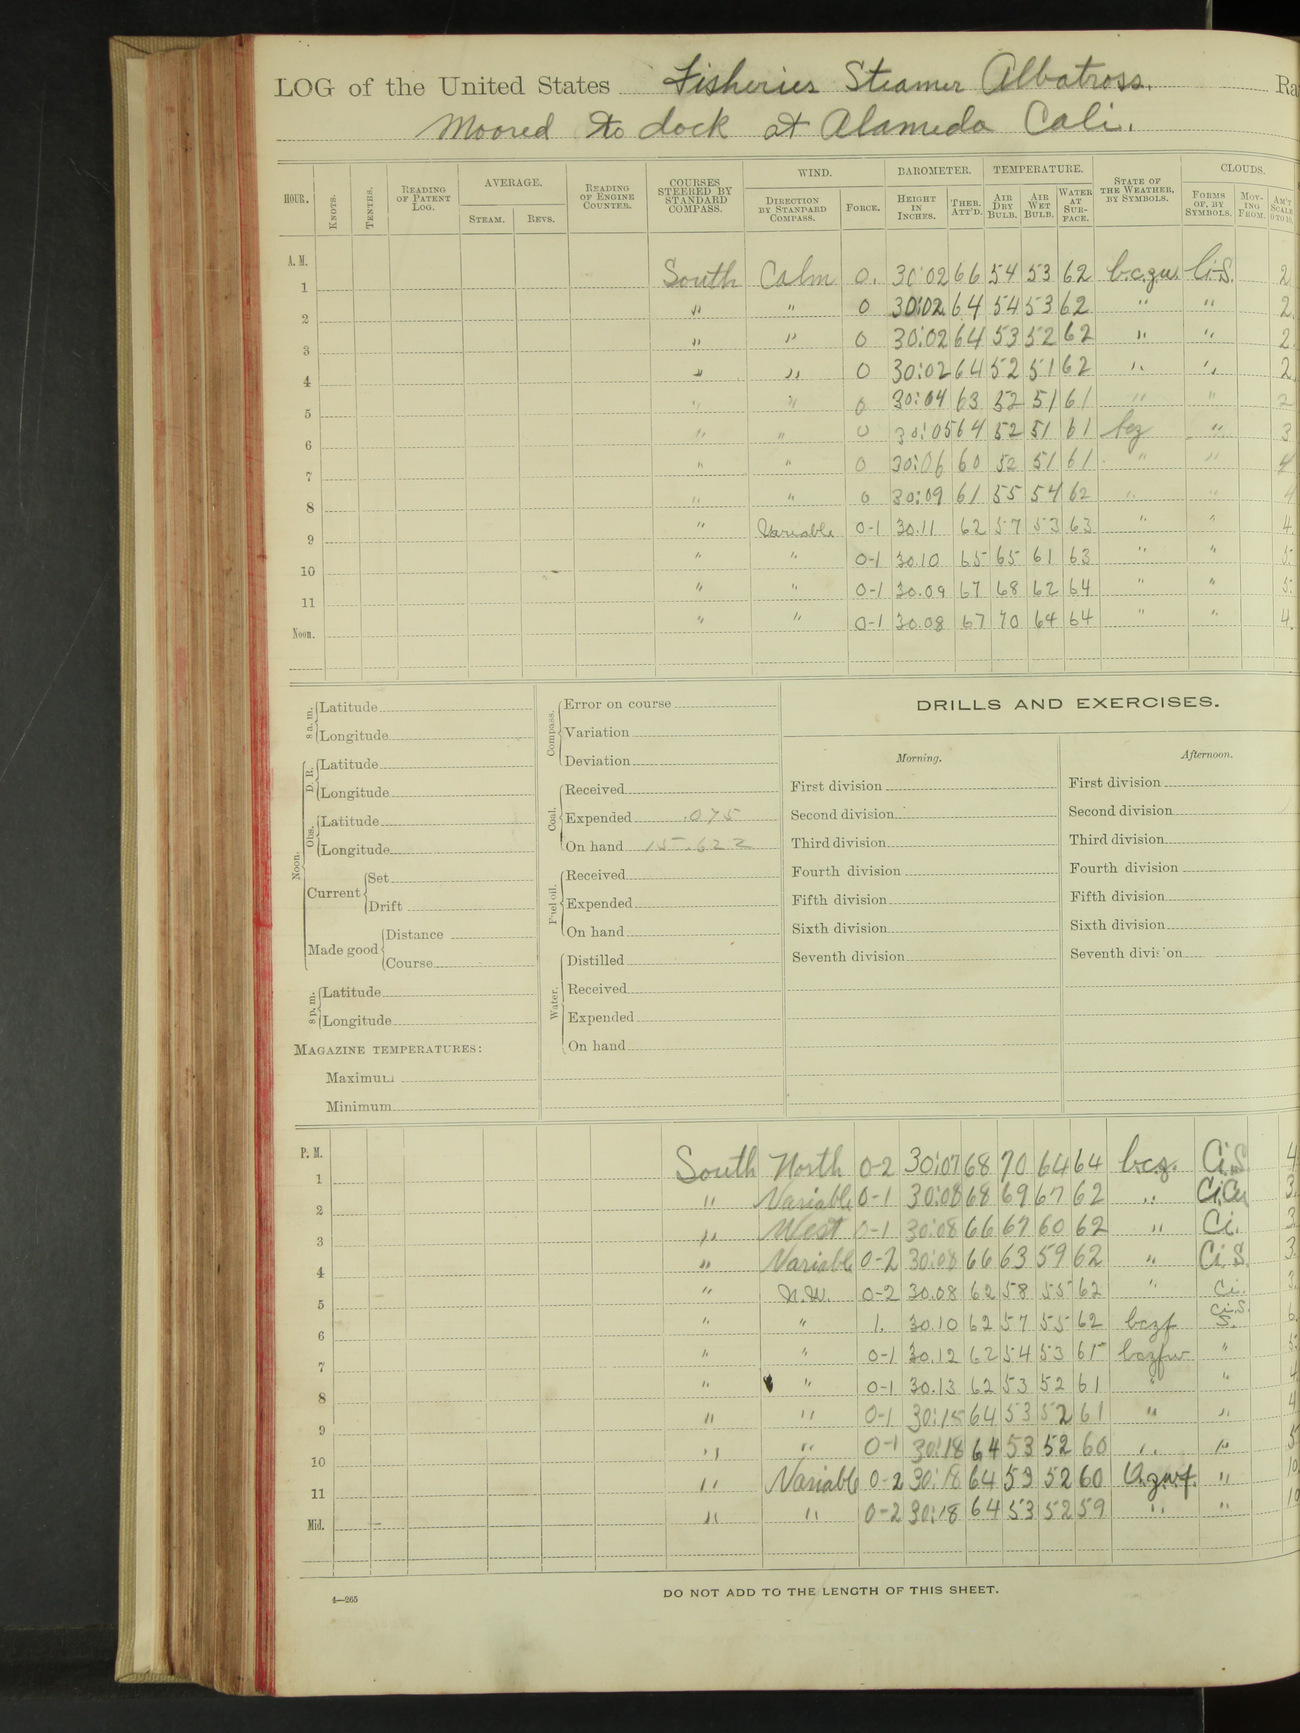 LOG of the United States Fisheries Steamer Albatross. Ra
Moored to dock at Alameda Cali.
HOUR. KNOTS. TENTHS. READING OF PATENT LOG. AVERAGE. STEAM. REVS. READING OF ENGINE COUNTER. COURSES STEERED BY STANDARD COMPASS. WIND. DIRECTION BY STANDARD COMPASS. FORCE. BAROMETER. HEIGHT IN INCHES. THER. ATT'D. TEMPERATURE. AIR DRY BULB. AIR WET BULB. WATER AT SURFACE. STATE OF THE WEATHER, BY SYMBOLS. CLOUDS. FORMS OF, BY SYMBOLS. MOVING FROM. AM'T SCALE 0 TO 10.
A. M.
1 South Calm 0. 30:02 66 54 53 62 b.c.z.w. Ci-S. 2
2 " " 0 30:02 64 54 53 62 " " 2
3 " " 0 30:02 64 53 52 62 " " 2
4 " " 0 30:02 64 52 51 62 " " 2
5 " " 0 30:04 63 52 51 61 " " 2
6 " " 0 30:05 64 52 51 61 bcz " 3
7 " " 0 30:06 60 52 51 61 " " 4
8 " " 0 30:09 61 55 54 62 " " 4
9 " Variable 0-1 30.11 62 57 53 63 " " 4.
10 " " 0-1 30.10 65 65 61 63 " " 5.
11 " " 0-1 30.09 67 68 62 64 " " 5.
Noon. " " 0-1 30.08 67 70 64 64 " " 4.
8 a. m. Latitude
Longitude
Noon. D. R. Latitude
Longitude
Obs. Latitude
Longitude
Current Set
Drift
Made good Distance
Course
8 p. m. Latitude
Longitude
MAGAZINE TEMPERATURES:
Maximum
Minimum
Compass. Error on course
Variation
Deviation
Coal. Received
Expended .075
On hand 15.622
Fuel oil. Received
Expended
On hand
Water. Distilled
Received
Expended
On hand
DRILLS AND EXERCISES.
Morning.
First division
Second division
Third division
Fourth division
Fifth division
Sixth division
Seventh division
Afternoon.
First division
Second division
Third division
Fourth division
Fifth division
Sixth division
Seventh division
P. M.
1 South North 0-2 30:07 68 70 64 64 b.c.z. Ci.S 4
2 " Variable 0-1 30:08 68 69 67 62 " Ci.Cu 3
3 " West 0-1 30:08 66 67 60 62 " Ci. 3
4 " Variable 0-2 30:08 66 63 59 62 " Ci.S. 3
5 " N.W. 0-2 30.08 62 58 55 62 " Ci. 3.
6 " " 1. 30.10 62 57 55 62 bczf Ci.S. S. 6.
7 " " 0-1 30.12 62 54 53 61 bczfw " 5
8 " " 0-1 30.13 62 53 52 61 " " 4
9 " " 0-1 30:15 64 53 52 61 " " 4
10 " " 0-1 30:18 64 53 52 60 " " 5
11 " Variable 0-2 30:18 64 53 52 60 O.z.w.f. " 10
Mid. " " 0-2 30:18 64 53 52 59 " " 10
4—265
DO NOT ADD TO THE LENGTH OF THIS SHEET.